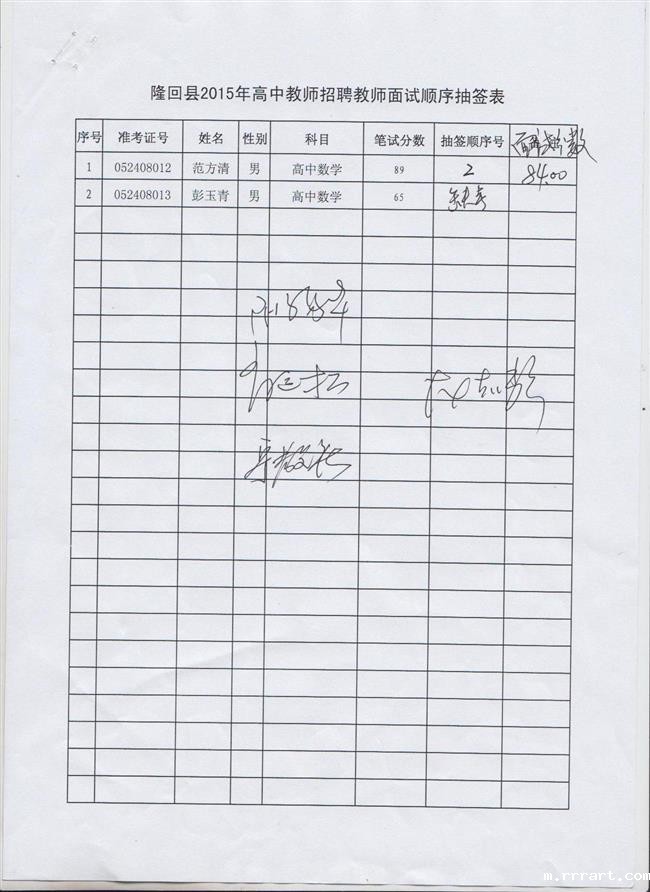 隆回县2015年高中教师招聘教师面试顺序抽签表
序号 准考证号 姓名 性别 科目 笔试分数 抽签顺序号 面试分数
1 052408012 范方清 男 高中数学 89 2 84.00
2 052408013 彭玉青 男 高中数学 65
m.rrrart.com